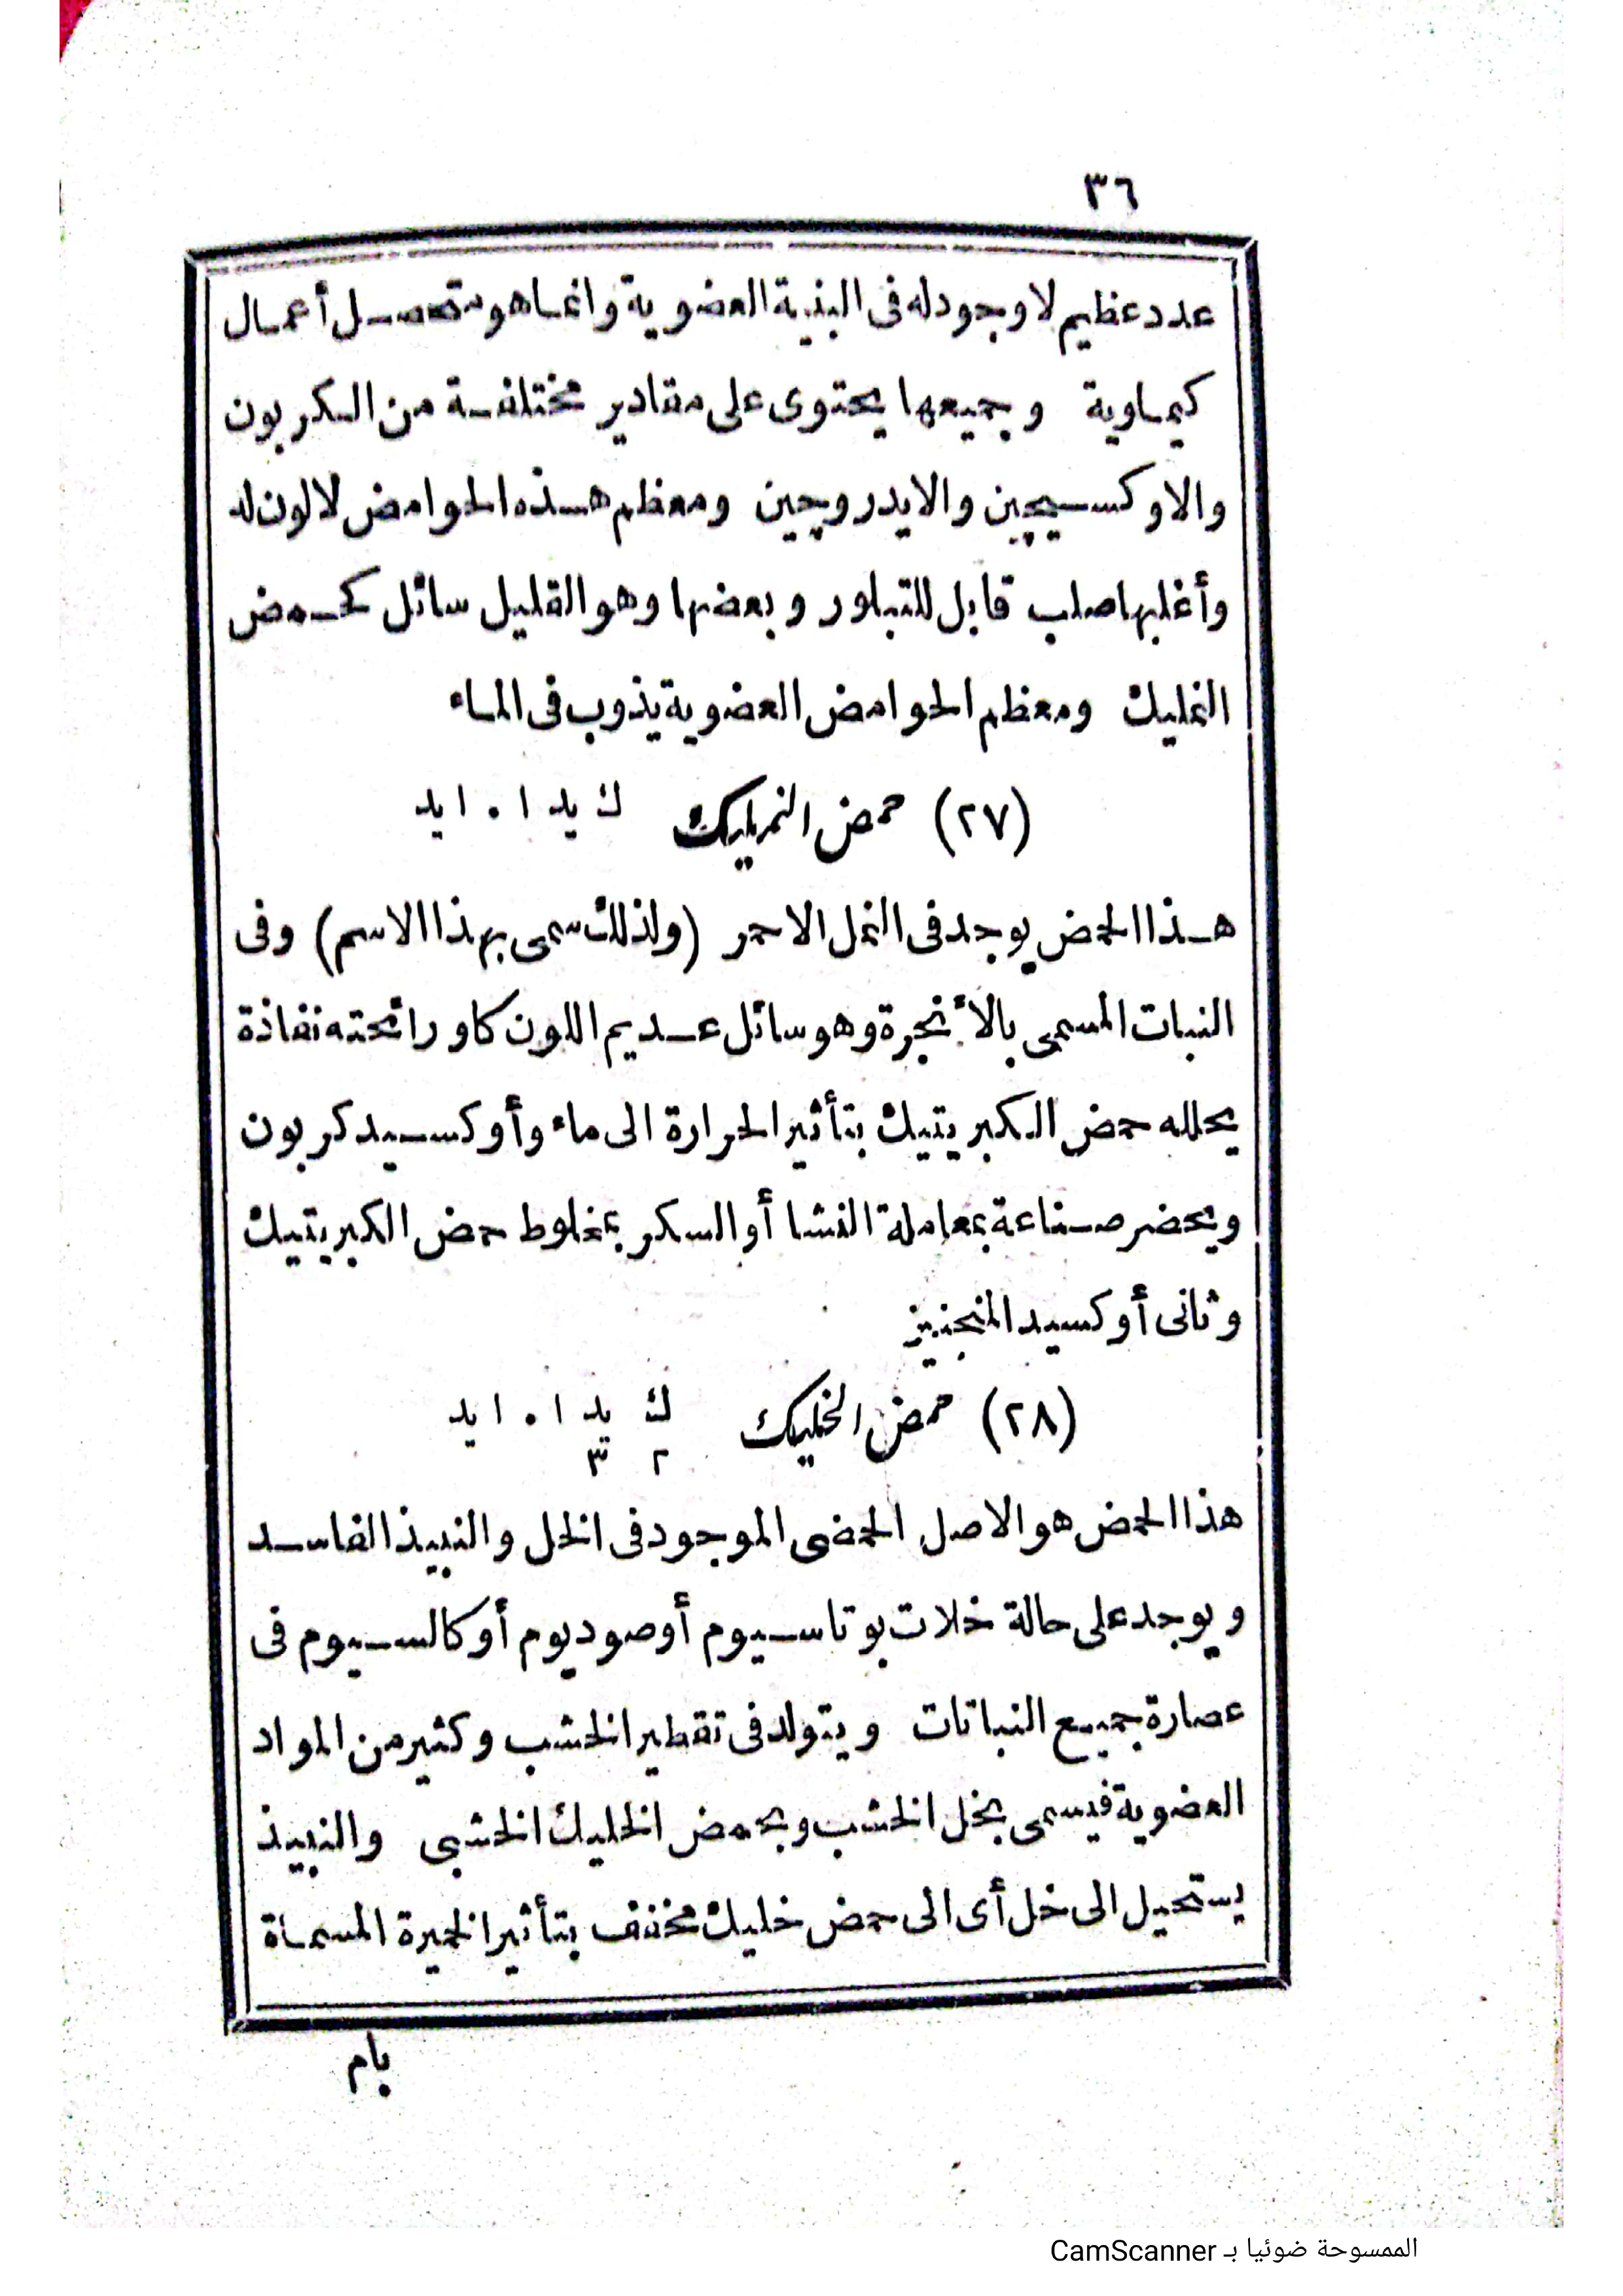 ٣٦
عدد عظيم لا وجود له فى البنية العضوية وانما هو متحصل أعمال
كيماوية وجميعها يحتوى على مقادير مختلفة من الكربون
والاوكسيچين والايدروچين ومعظم هذه الحوامض لا لون له
وأغلبها صلب قابل للتبلور وبعضها وهو القليل سائل كحمض
النمليك ومعظم الحوامض العضوية يذوب فى الماء
(٢٧) حمض النمليك ك يد ا . ا يد
هذا الحمض يوجد فى النمل الاحمر (ولذلك سمى بهذا الاسم) وفى
النبات المسمى بالأنجرة وهو سائل عديم اللون كاو رائحته نفاذة
يحلله حمض الكبريتيك بتأثير الحرارة الى ماء وأوكسيد كربون
ويحضر صناعة بمعاملة النشا أو السكر بمخلوط حمض الكبريتيك
وثانى أوكسيد المنجنيز
(٢٨) حمض الخليك ك٢ يد٣ ا . ا يد
هذا الحمض هو الاصل الحمضى الموجود فى الخل والنبيذ الفاسد
ويوجد على حالة خلات بوتاسيوم أو صوديوم أو كالسيوم فى
عصارة جميع النباتات ويتولد فى تقطير الخشب وكثير من المواد
العضوية فيسمى بخل الخشب وبحمض الخليك الخشبى والنبيذ
يستحيل الى خل أى الى حمض خليك مخفف بتأثير الخميرة المسماة
بام
الممسوحة ضوئيا بـ CamScanner